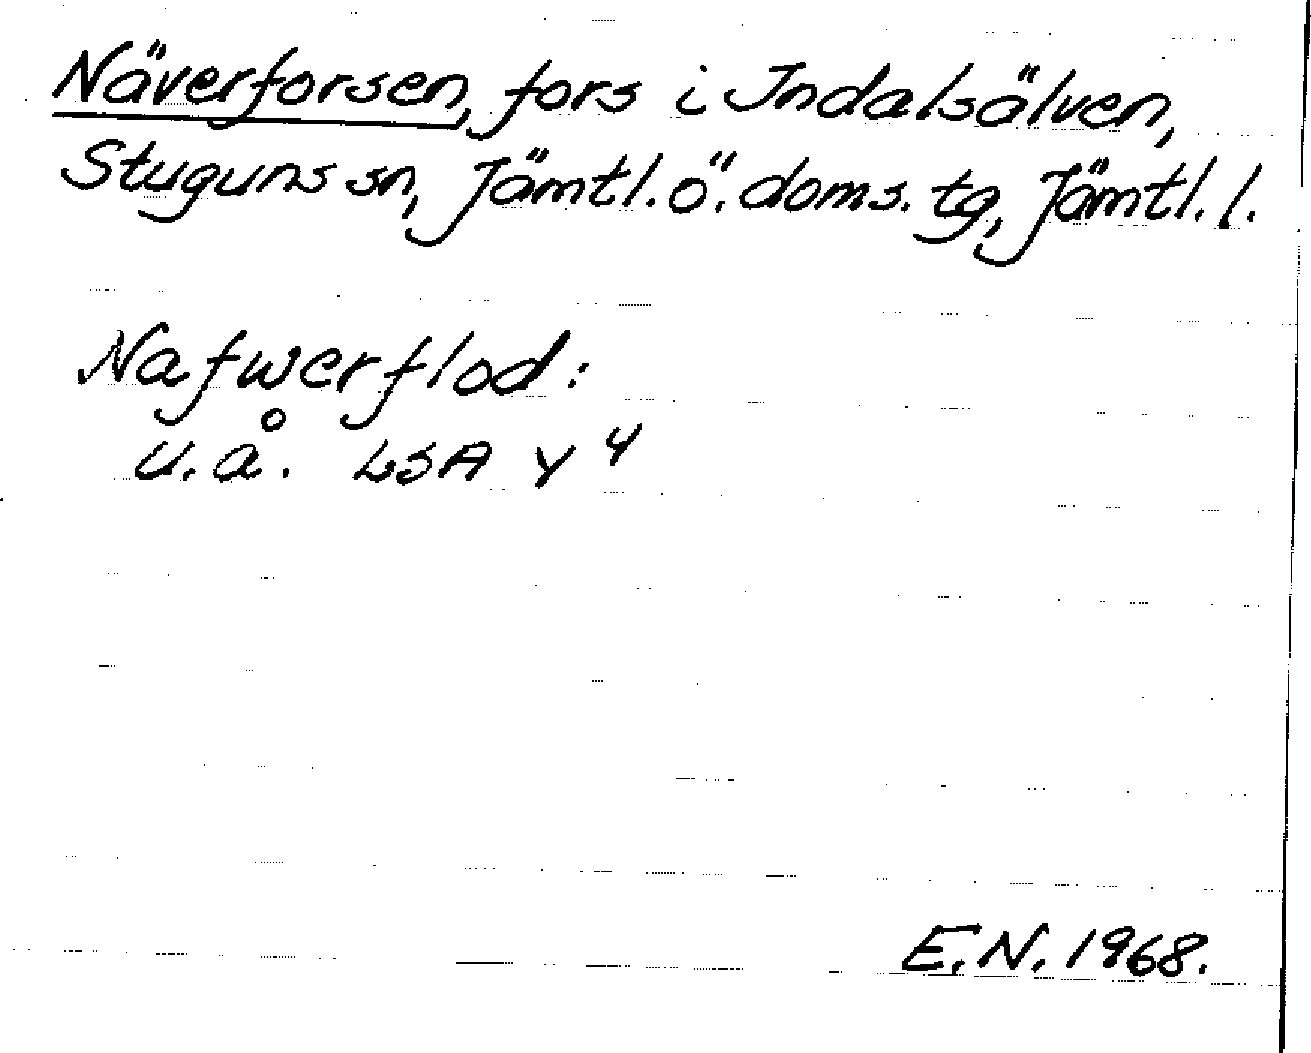 Näverforsen, fors i Indalsälven,
Stuguns sn, Jämtl. ö. doms. tg, Jämtl. l.
Nafwerflod:
u. å. LSA Y 4
E. N. 1968.